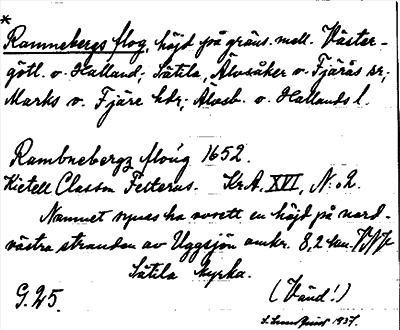 *
Ramnebergs flog, höjd på gräns. mell. Väster-
götl. o. Halland; Sätila, Älvsåker o. Fjärås sr;
Marks o. Fjäre hdr; Älvsb. o. Hallands l.
Rambnebergz floúg 1652.
Kietell Classon Felterus. KrA. XVI, N:o 2.
Namnet synes ha avsett en höjd på nord-
västra stranden av Uggsjön omkr. 8,2 km. NV
Sätila kyrka.
G. 25. (Vänd!)
1937.